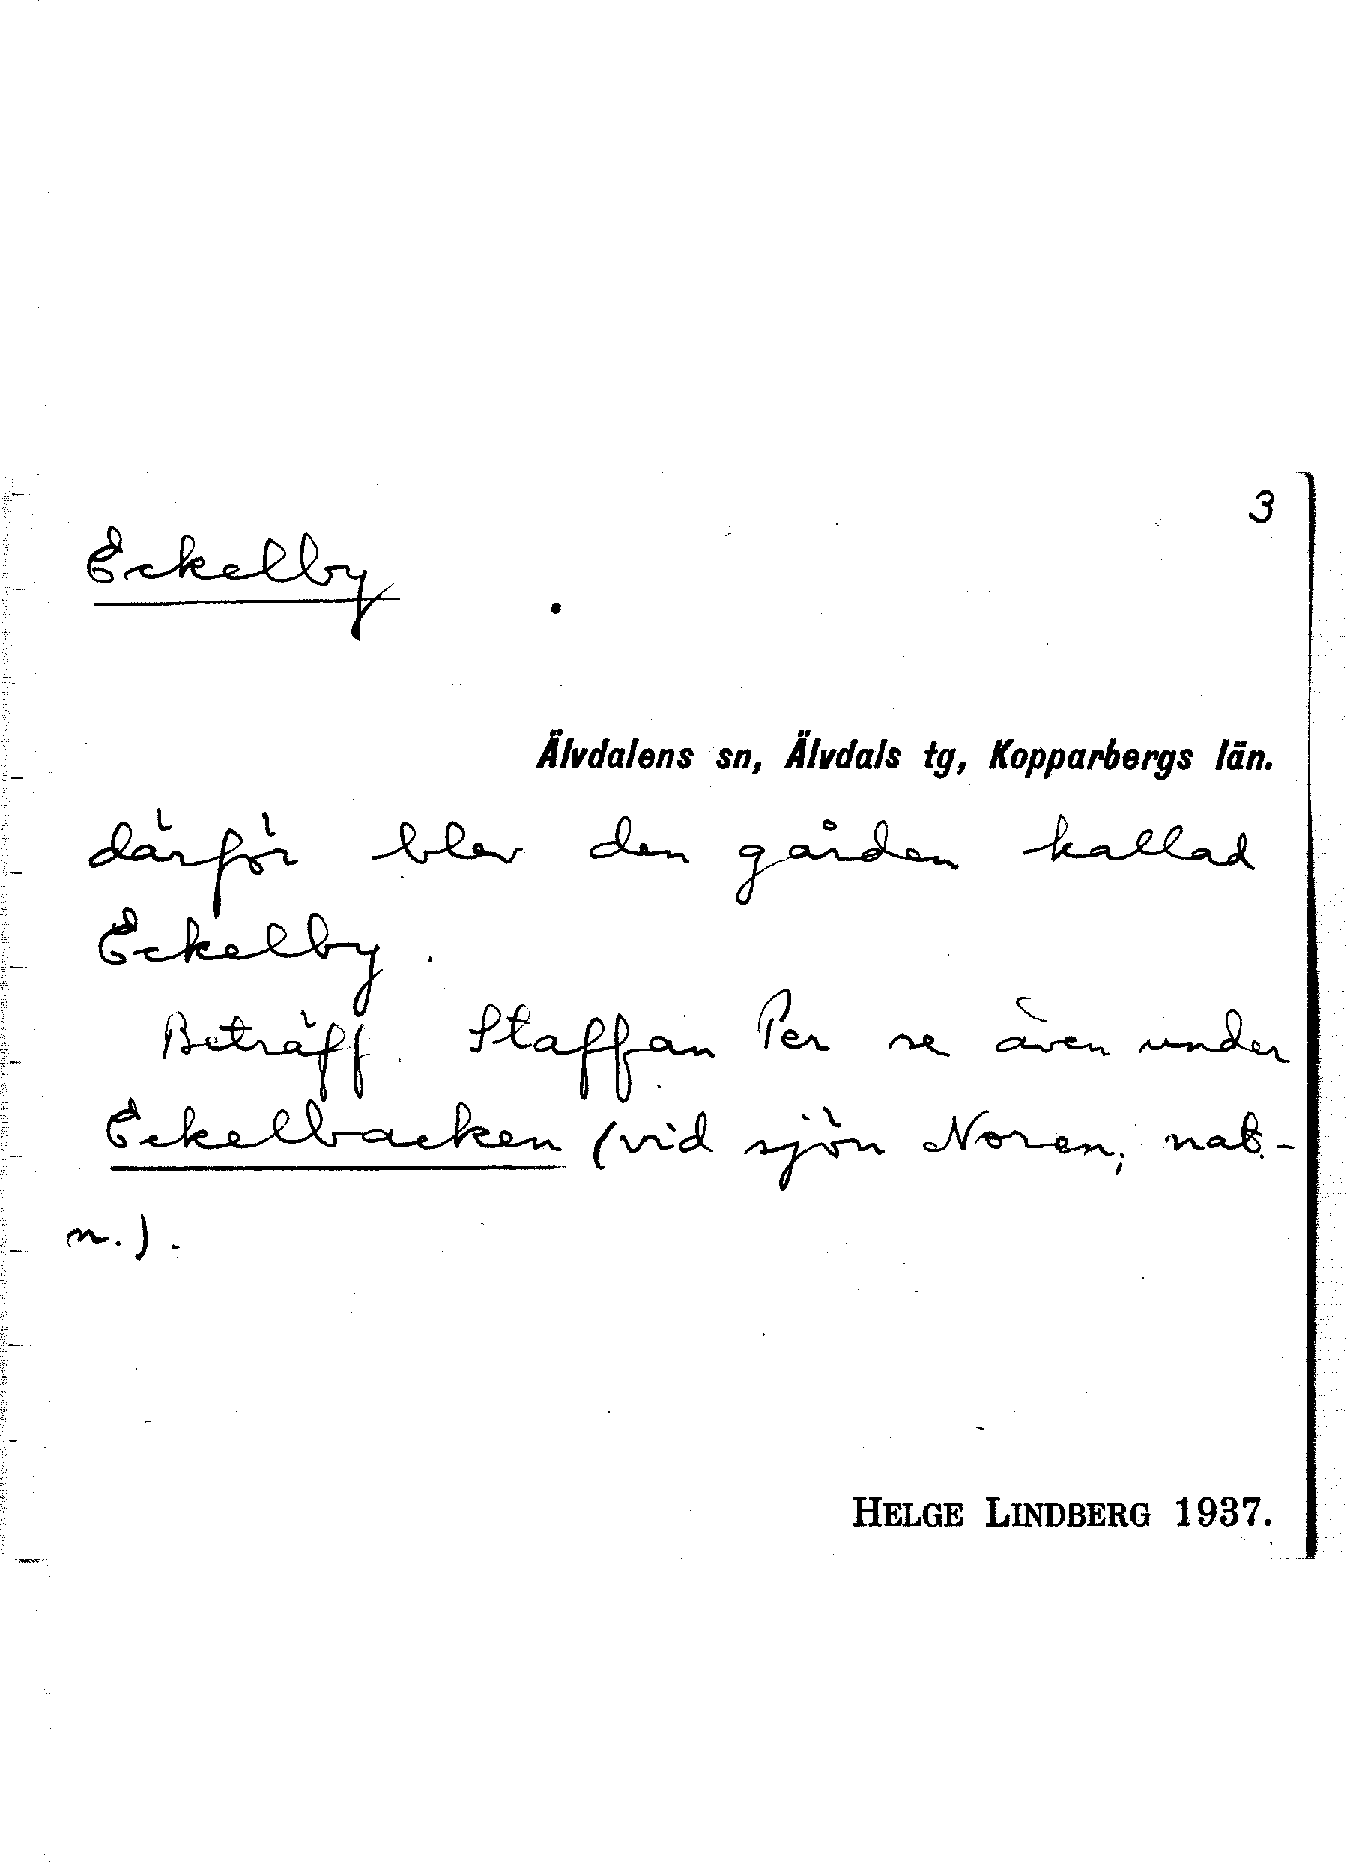 3
Eckelby
Älvdalens sn, Älvdals tg, Kopparbergs län.
därför blev den gården kallad
Eckelby.
Beträff. Staffan Per se även under
Eckelbacken (vid sjön Noren; nat.-
n.).
HELGE LINDBERG 1937.